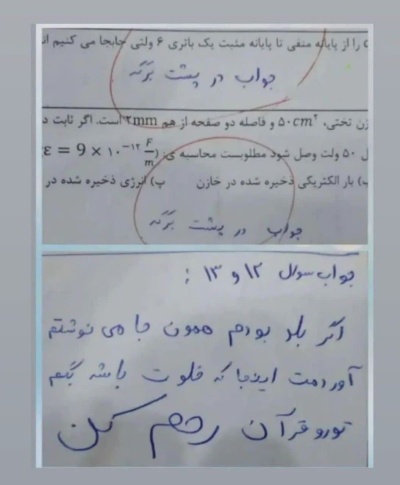 را از پایانه منفی تا پایانه مثبت یک باتری ۶ ولتی جابجا می کنیم
جواب در پشت برگه
زن تختی، ۵۰cm² و فاصله دو صفحه از هم ۲mm است. اگر ثابت د
ل ۵۰ ولت وصل شود مطلوبست محاسبه ی: (ε = 9 × ۱۰⁻¹² F/m
) بار الکتریکی ذخیره شده در خازن پ) انرژی ذخیره شده در
جواب در پشت برگه
جواب سوال ۱۲ و ۱۳ :
اگر بلد بودم همون جا می نوشتم
آوردمت اینجا که خلوت باشه بگم
تورو قرآن رحم کن